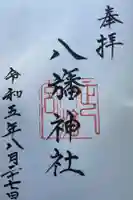 奉拝
八幡神社
令和五年八月二七日